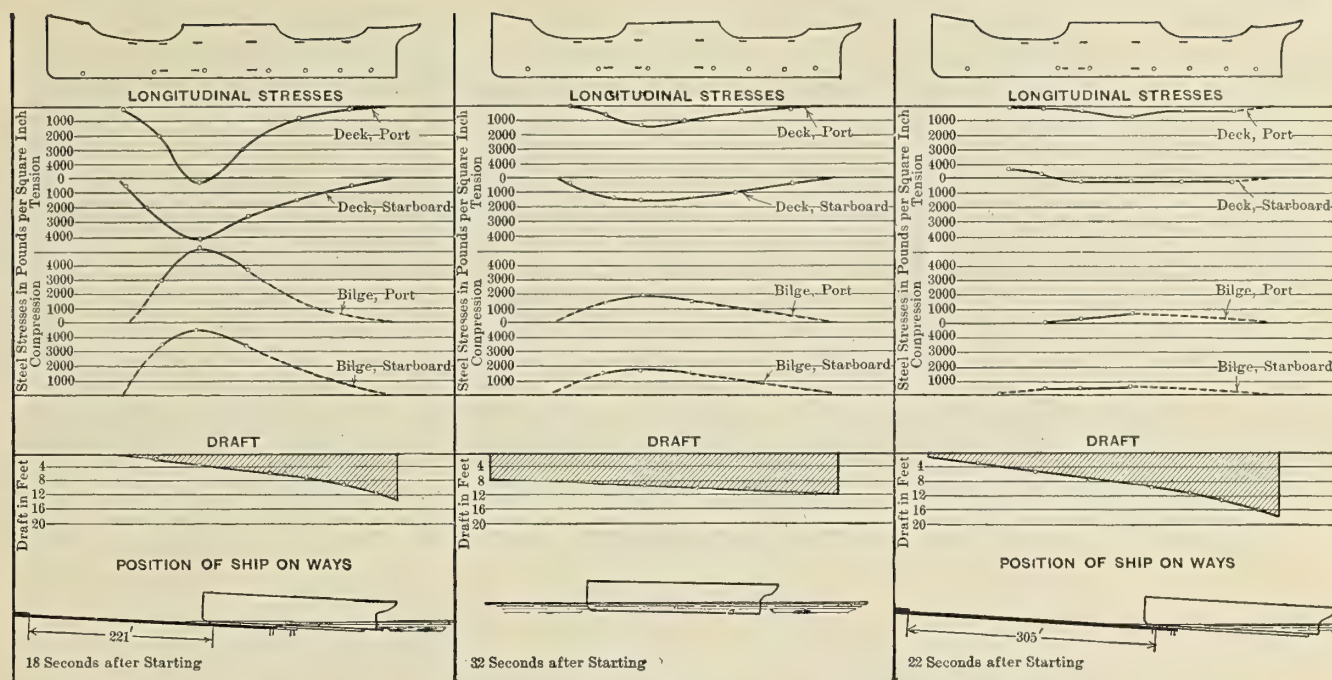 LONGITUDINAL STRESSES
Steel Stresses in Pounds per Square Inch
Compression
Tension
1000
2000
3000
4000
0
1000
2000
3000
4000
4000
3000
2000
1000
0
4000
3000
2000
1000
Deck, Port
Deck, Starboard
Bilge, Port
Bilge, Starboard
DRAFT
Draft in Feet
4
8
12
16
20
POSITION OF SHIP ON WAYS
221'
18 Seconds after Starting
LONGITUDINAL STRESSES
Steel Stresses in Pounds per Square Inch
Compression
Tension
1000
2000
3000
4000
0
1000
2000
3000
4000
4000
3000
2000
1000
0
4000
3000
2000
1000
Deck, Port
Deck, Starboard
Bilge, Port
Bilge, Starboard
DRAFT
Draft in Feet
4
8
12
16
20
32 Seconds after Starting
LONGITUDINAL STRESSES
Steel Stresses in Pounds per Square Inch
Compression
Tension
1000
2000
3000
4000
0
1000
2000
3000
4000
4000
3000
2000
1000
0
4000
3000
2000
1000
Deck, Port
Deck, Starboard
Bilge, Port
Bilge, Starboard
DRAFT
Draft in Feet
4
8
12
16
20
POSITION OF SHIP ON WAYS
305'
22 Seconds after Starting